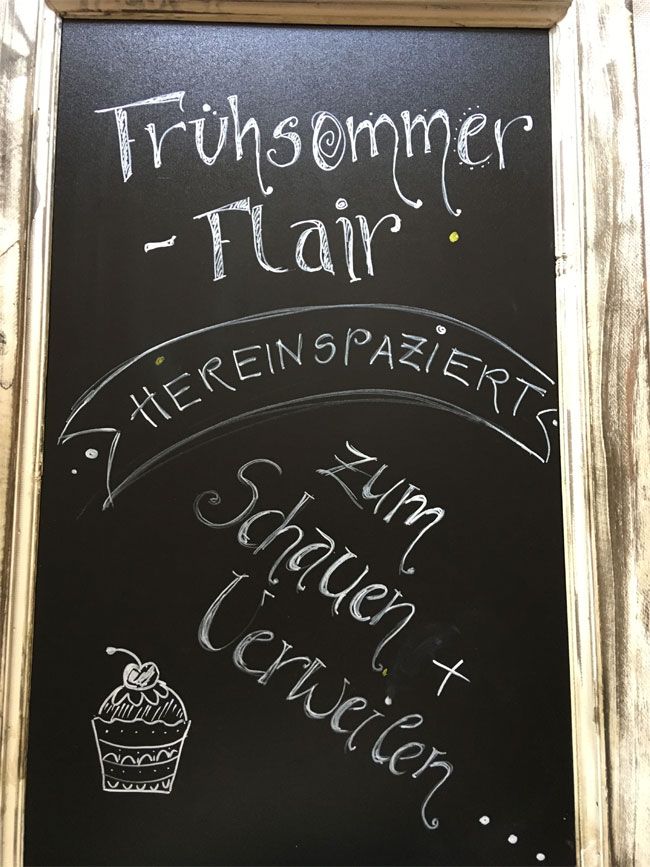 Frühsommer
- Flair
HEREINSPAZIERT
zum
Schauen +
Verweilen...